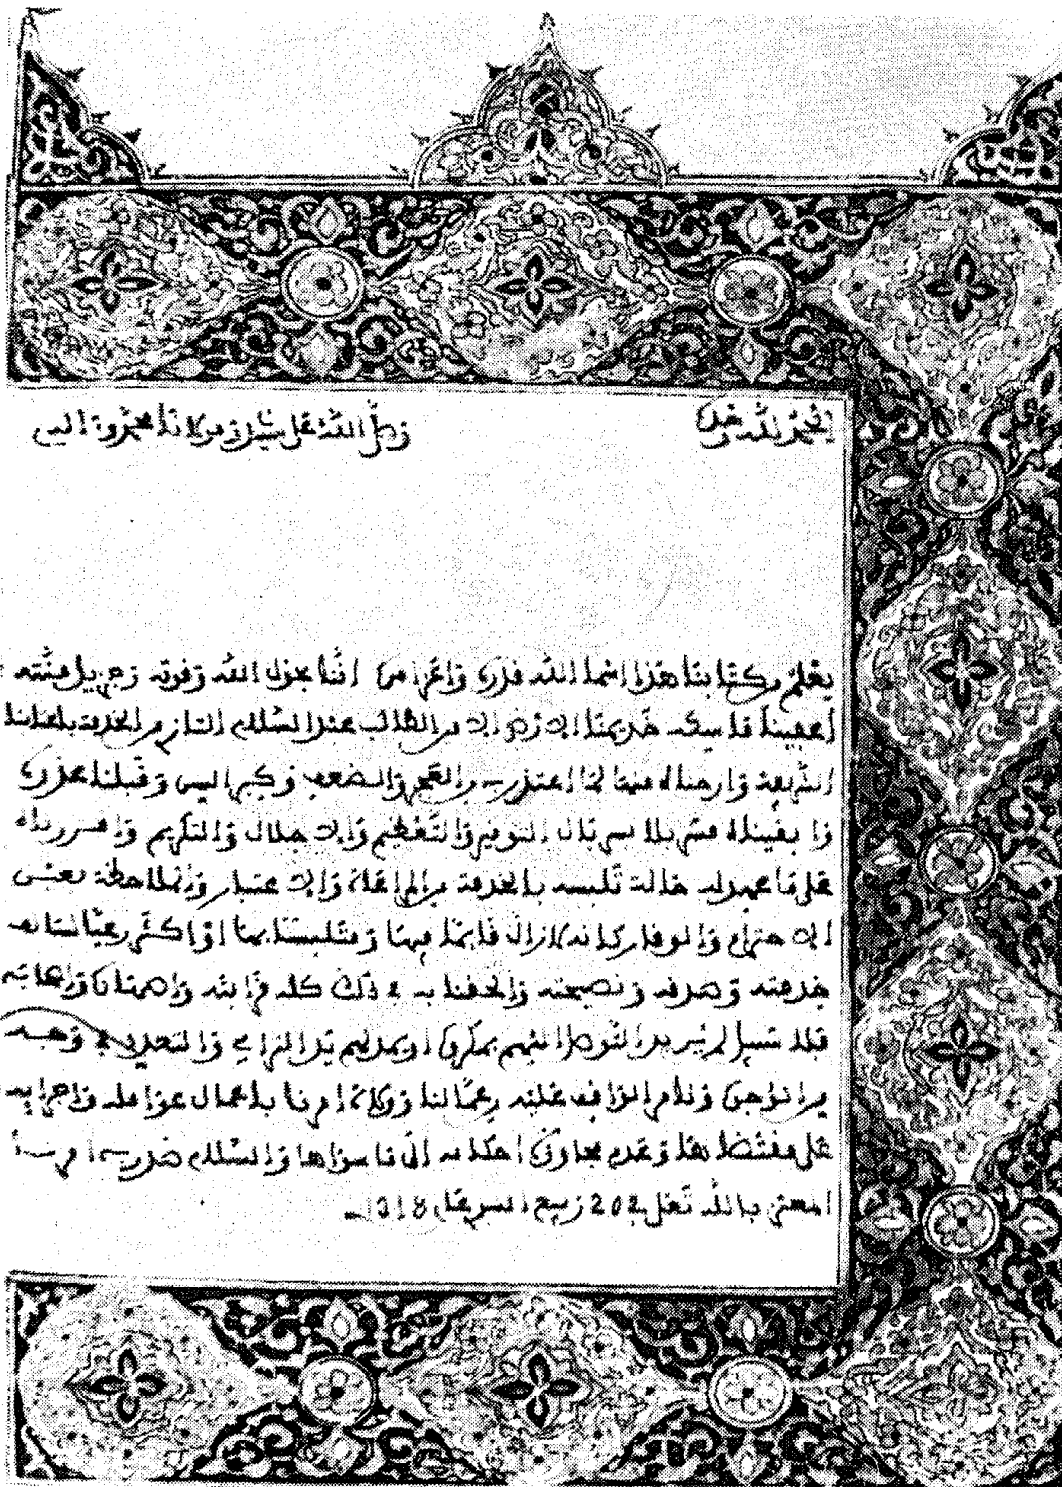 الحمد لله وحده
وصلى الله على سيدنا ومولانا محمد وآله
يعلم من كتابنا هذا اسماه الله قدره واعز امره اننا بحول الله وقوته وجزيل منته
أعفينا ماسكه خديمنا الارضى الطالب عبد السلام التازي من الخدمة باعتابنا
الشريفة وارحناه منها لما اعتذر به من العجز والضعف وكبر السن وقبلنا عذره
وابقيناه سربال التوقير والتعظيم والاجلال والتكريم
على ما عهد له حالة تلبسه بالخدمة من المراعاة والاعتبار والملاحظة بعين
الاحترام والوقار كأنه لازال قائما فيها ومتلبسا بها او اكثر
خدمته وصدقه ونصيحته والحقنا به في ذلك كله قرابته واصهاره
فلا سبيل لمن يريد التوصل اليهم بمكروه او يمد لهم يد الترامي والتعدي في وجه
من الوجوه ونامر الواقف عليه من عمالنا وولاة امرنا باعمال عوامله واجرائه
على مقتضاه وعدم مجاوزة احكامه الى ما سواها والسلام صدر به امرنا
المعتز بالله تعالى في 20 ربيع النبوي عام 1318